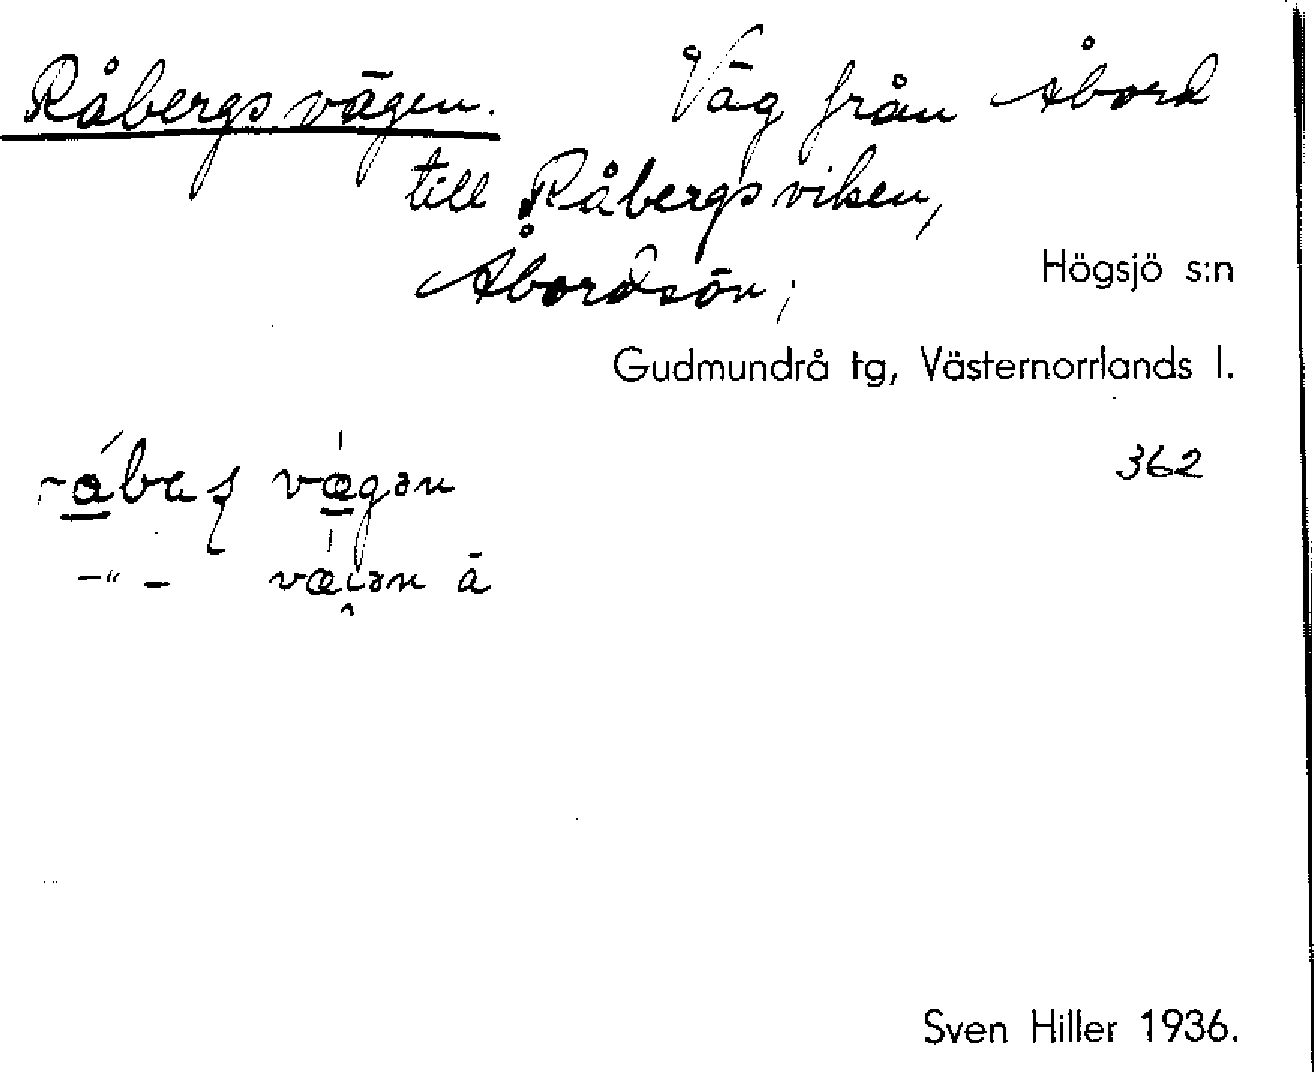 Råbergsvägen. Väg från Åbord
till Råbergsviken,
Åbordsön,
Högsjö s:n
Gudmundrå tg, Västernorrlands l.
362
vägən
-"- ā
Sven Hiller 1936.